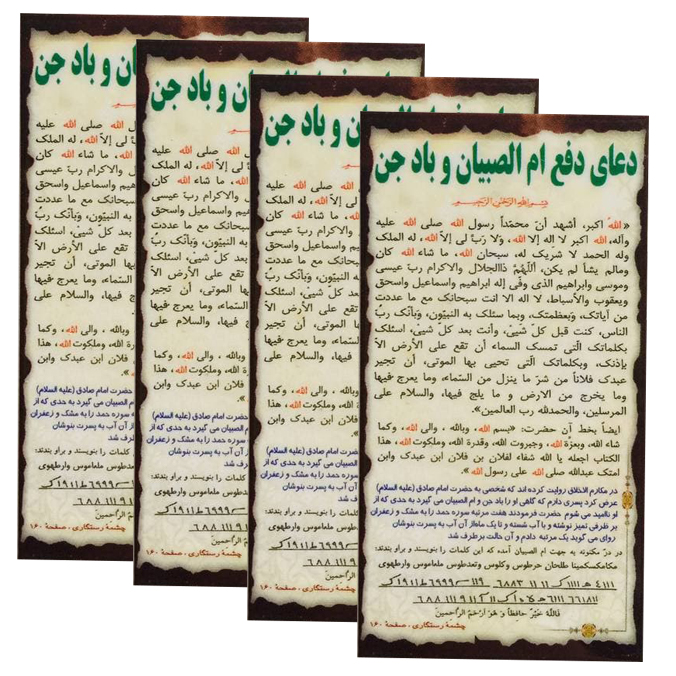 دعای دفع ام الصبیان و باد جن
بسم الله الرحمن الرحیم
«الله اکبر، أشهد أنّ محمّداً رسول الله صلی الله علیه
وآله، الله اکبر لا إله إلا الله، ولا ربّ لی إلاّ الله، له الملک
وله الحمد لا شریک له، سبحان الله، ما شاء الله کان
ومالم یشأ لم یکن، أللّهمّ ذاالجلال والاکرام ربّ عیسی
وموسی وابراهیم الذی وفّی إله ابراهیم واسماعیل واسحق
ویعقوب والأسباط، لا اله الا انت سبحانک مع ما عددت
من آیاتک، وبعظمتک، وبما سئلک به النبیّون، وبأنّک ربّ
الناس، کنت قبل کلّ شیئ، وأنت بعد کلّ شیئ، اسئلک
بکلماتک الّتی تمسک السماء أن تقع علی الأرض الاّ
بإذنک، وبکلماتک الّتی تحیی بها الموتی، أن تجیر
عبدک فلاناً من شرّ ما ینزل من السّماء، وما یعرج فیها
وما یخرج من الارض و ما یلج فیها، والسلام علی
المرسلین، والحمدلله رب العالمین».
ایضاً بخط آن حضرت: «بسم الله وبالله، والی الله، وکما
شاء الله، وبعزّة الله، وجبروت الله، وقدرة الله، وملکوت الله، هذا
الکتاب اجعله یا الله شفاء لفلان بن فلان ابن عبدک وابن
امتک عبدالله صلی الله علی رسول الله».
در مکارم الاخلاق روایت کرده اند که شخصی به حضرت امام صادق (علیه السلام)
عرض کرد پسری دارم که گاهی او را باد جن و ام الصبیان می گیرد به حدی که از
او ناامید می شوم حضرت فرمودند هفت مرتبه سوره حمد را به مشک و زعفران
بر ظرفی تمیز نوشته و با آب شسته و تا یک ماه از آن آب به پسرت بنوشان
راوی می گوید یک مرتبه دادم و آن حالت برطرف شد
در درّ مکنونه به جهت ام الصبیان آمده که این کلمات را بنویسند و براو بندند:
طلحان حرطوس وکلوس وتعدطوس ملماموس وارطهوی
فالله خیر حافظا و هو ارحم الراحمین
چشمهٔ رستگاری ، صفحهٔ ۱۶۰